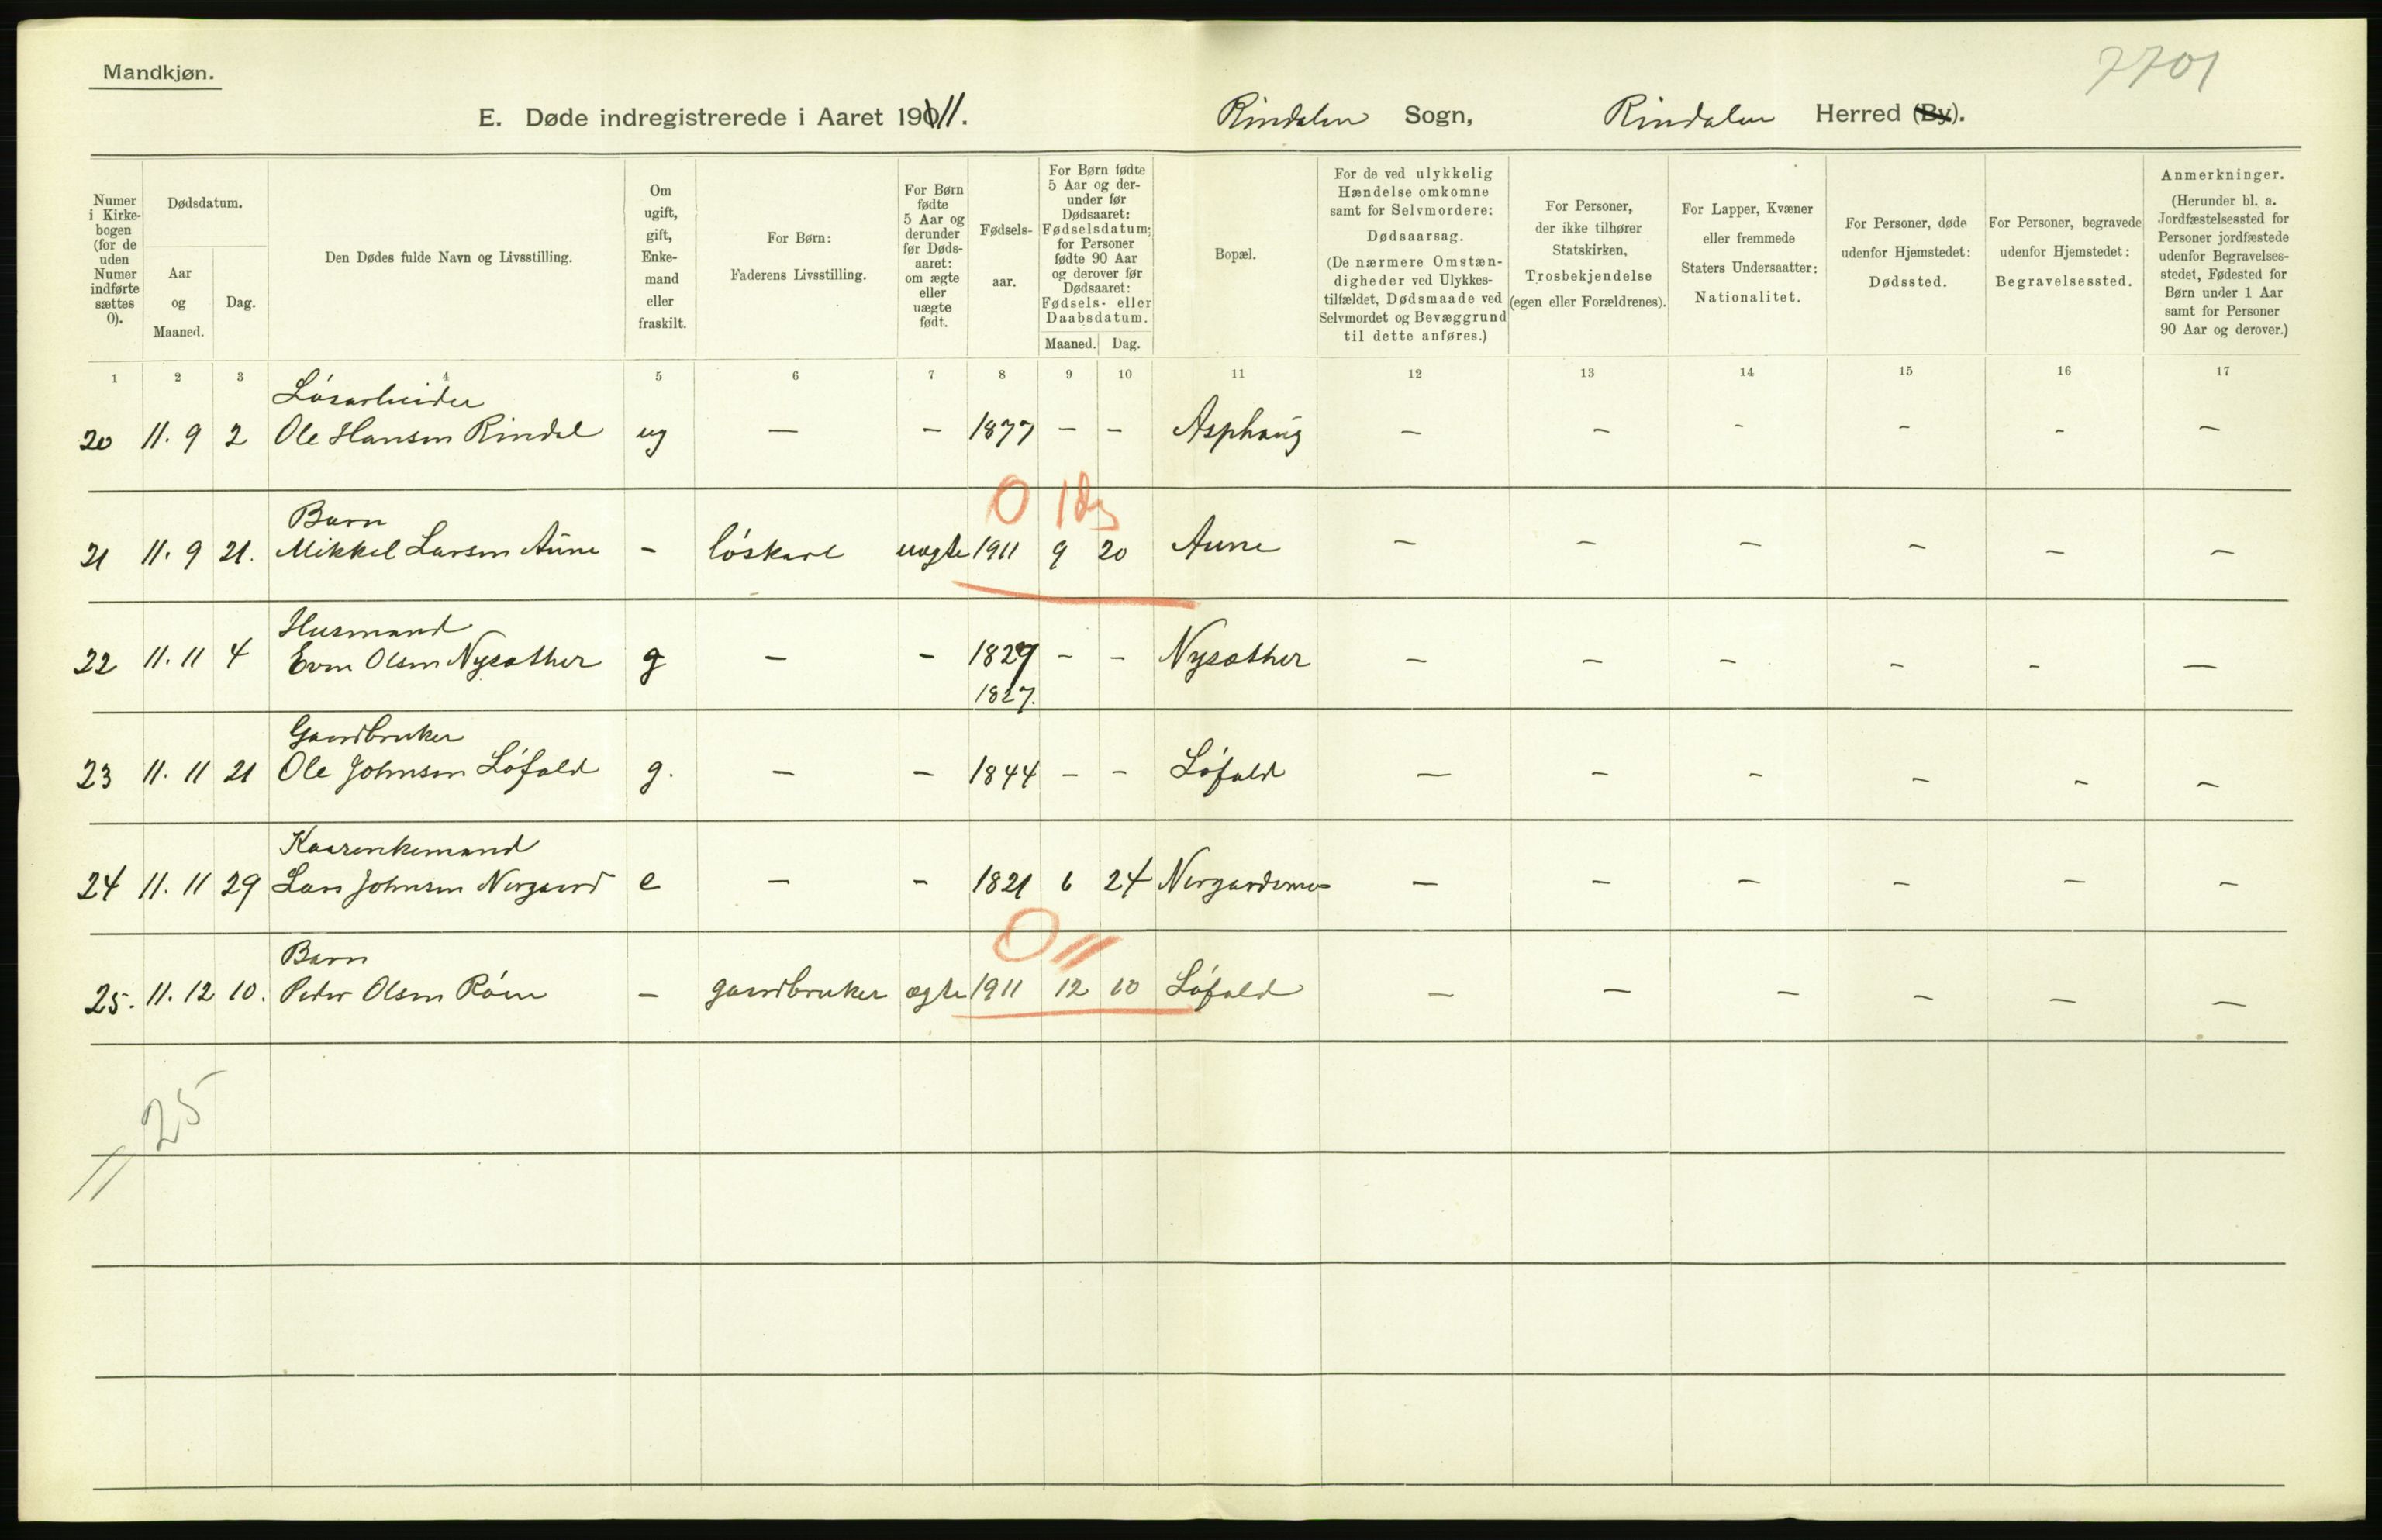 Mandkjøn.
7701
E. Døde indregistrerede i Aaret 1911. Rindalen Sogn, Rindalen Herred (By).
Numer i Kirkebogen (for de uden Numer indførte sættes 0).
Dødsdatum.
Aar og Maaned.
Dag.
Den Dødes fulde Navn og Livsstilling.
Om ugift, gift, Enkemand eller fraskilt.
For Børn: Faderens Livsstilling.
For Børn fødte 5 Aar og derunder før Dødsaaret: om ægte eller uægte født.
Fødselsaar.
For Børn fødte 5 Aar og derunder før Dødsaaret: Fødselsdatum; for Personer fødte 90 Aar og derover før Dødsaaret: Fødsels- eller Daabsdatum.
Maaned. Dag.
Bopæl.
For de ved ulykkelig Hændelse omkomne samt for Selvmordere: Dødsaarsag. (De nærmere Omstændigheder ved Ulykkestilfældet, Dødsmaade ved Selvmordet og Bevæggrund til dette anføres.)
For Personer, der ikke tilhører Statskirken, Trosbekjendelse (egen eller Forældrenes).
For Lapper, Kvæner eller fremmede Staters Undersaatter: Nationalitet.
For Personer, døde udenfor Hjemstedet: Dødssted.
For Personer, begravede udenfor Hjemstedet: Begravelsessted.
Anmerkninger. (Herunder bl. a. Jordfæstelsessted for Personer jordfæstede udenfor Begravelsesstedet, Fødested for Børn under 1 Aar samt for Personer 90 Aar og derover.)
1 2 3 4 5 6 7 8 9 10 11 12 13 14 15 16 17
Løsarbeider
20 11. 9 2 Ole Hansen Rindal ug — – 1877 – – Asphaug – – – – – –
0 1 dg
Barn
21 11. 9 21. Mikkel Larsen Aune – løskarl uægte 1911 9 20 Aune – – – – – –
Husmand
22 11. 11 4 Even Olsen Nysæther g – – 1829 – – Nysæther – – – – – –
1827.
Gaardbruker
23 11. 11 21 Ole Johnsen Løfald g. – – 1844 – – Løfald – – – – – –
Kaarenkemand
24 11. 11 29 Lars Johnsen Nergaard e – – 1821 6 24 Nergardsmo – – – – – –
0 11
Barn
25. 11. 12 10. Peder Olsen Røen – gaardbruker ægte 1911 12 10 Løfald – – – – – –
25
//